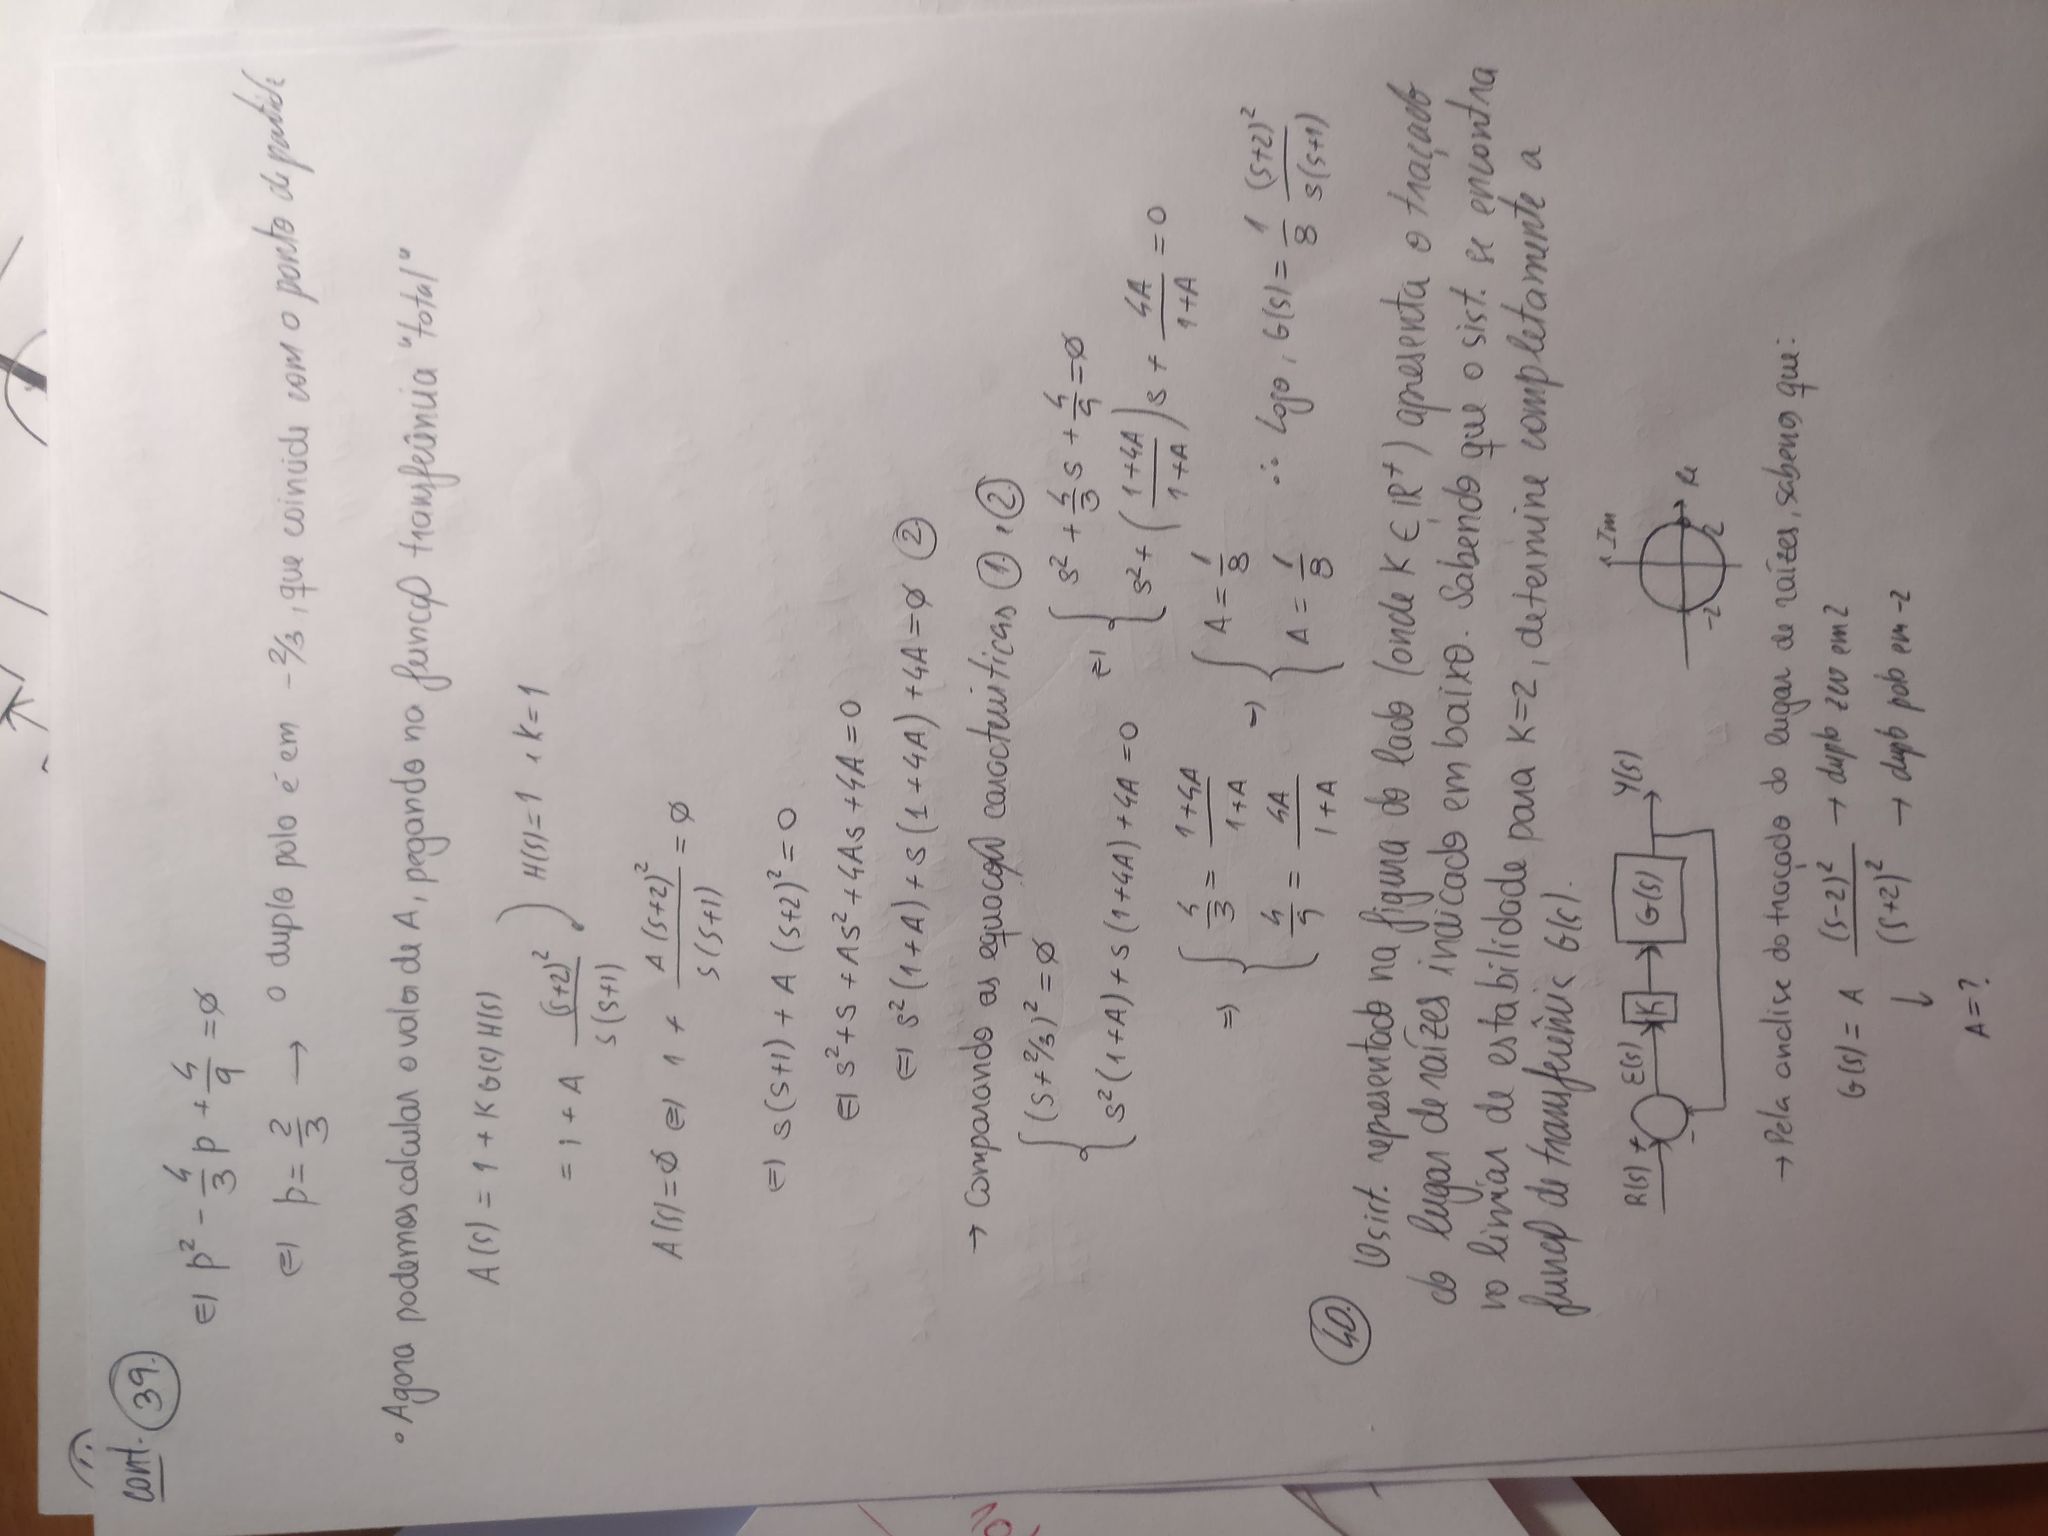 cont. 39.
⇔ p² - 4/3 p + 4/9 = ∅
⇔ p = 2/3 → o duplo polo é em -2/3, que coincide com o ponto de partida
• Agora podemos calcular o valor de A, pegando na função transferência "total"
A(s) = 1 + K G(s) H(s)
= 1 + A (s+2)² / s(s+1) H(s)=1 , K=1
A(s)=∅ ⇔ 1 + A(s+2)² / s(s+1) = ∅
⇔ s(s+1) + A (s+2)² = 0
⇔ s² + s + As² + 4As + 4A = 0
⇔ s²(1+A) + s(1+4A) + 4A = ∅ ②
→ Comparando as equações características ① e ②
{ (s+2/3)² = ∅ ; s²(1+A) + s(1+4A) + 4A = 0 ⇔ { s² + 4/3 s + 4/9 = ∅ ; s² + ((1+4A)/(1+A)) s + 4A/(1+A) = 0
⇒ { 4/3 = (1+4A)/(1+A) ; 4/9 = 4A/(1+A) → { A = 1/8 ; A = 1/8 ∴ Logo, G(s) = 1/8 (s+2)² / s(s+1)
40. O sist. representado na figura do lado (onde K ∈ IR⁺) apresenta o traçado
do lugar de raízes indicado em baixo. Sabendo que o sist. se encontra
no limiar de estabilidade para K=2, determine completamente a
função de transferência G(s).
R(s) + - E(s) K G(s) Y(s) Im Re -2 2
→ Pela analise do traçado do lugar de raízes, sabemos que:
G(s) = A (s-2)² / (s+2)² → duplo zero em 2
→ duplo polo em -2
↓
A = ?